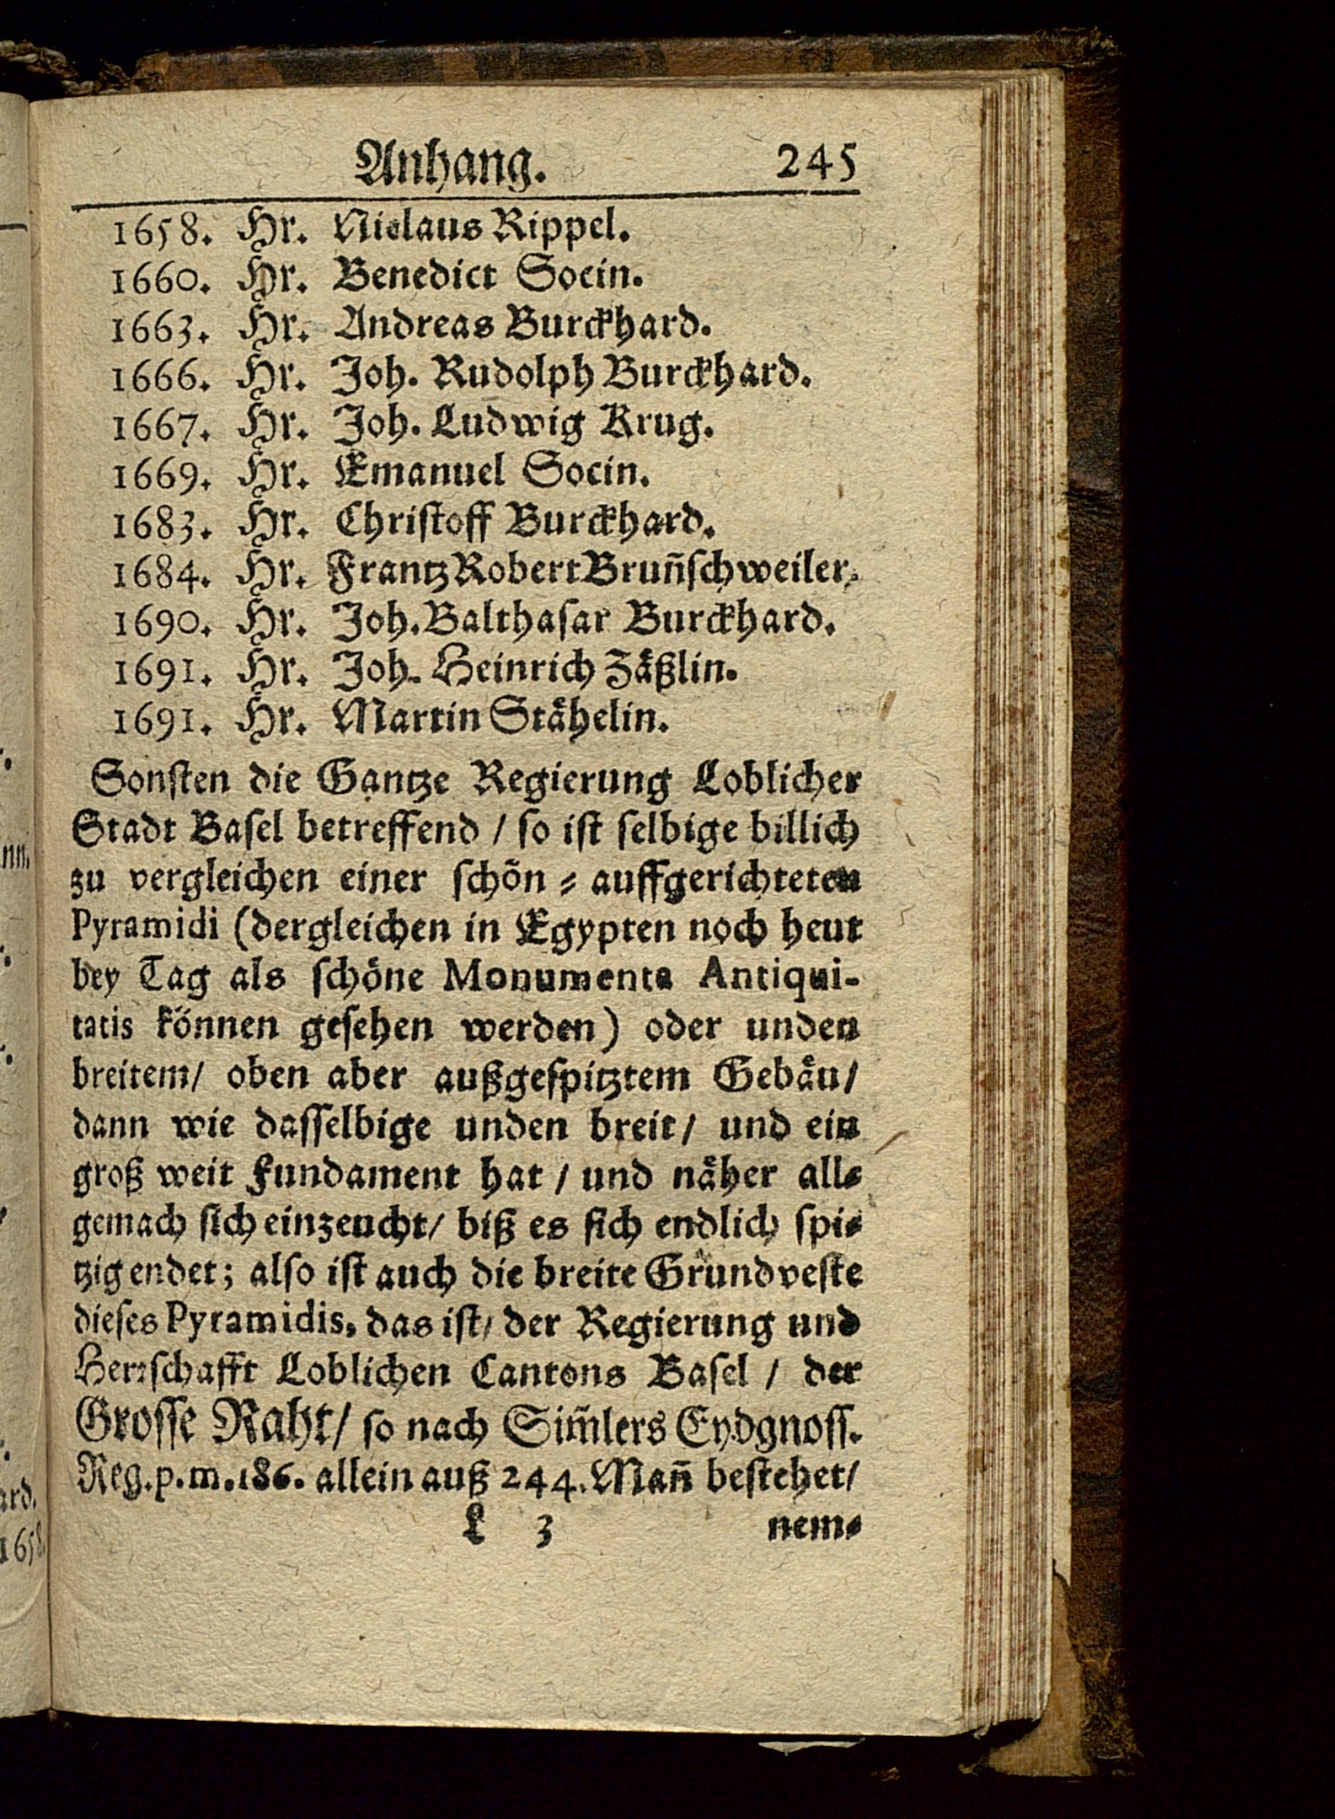 Anhang. 245
1658. Hr. Niclaus Rippel.
1660. Hr. Benedict Socin.
1663. Hr. Andreas Burckhard.
1666. Hr. Joh. Rudolph Burckhard.
1667. Hr. Joh. Ludwig Krug.
1669. Hr. Emanuel Socin.
1683. Hr. Christoff Burckhard.
1684. Hr. Frantz Robert Brun̄schweiler.
1690. Hr. Joh. Balthasar Burckhard.
1691. Hr. Joh. Heinrich Zäßlin.
1691. Hr. Martin Stähelin.
Sonsten die Gantze Regierung Loblicher
Stadt Basel betreffend / so ist selbige billich
zu vergleichen einer schön - auffgerichteten
Pyramidi (dergleichen in Egypten noch heut
bey Tag als schöne Monumenta Antiqui-
tatis können gesehen werden) oder unden
breitem / oben aber außgespitztem Gebäu /
dann wie dasselbige unden breit / und ein
groß weit Fundament hat / und näher all-
gemach sich einzeucht / biß es sich endlich spi-
tzig endet; also ist auch die breite Grundveste
dieses Pyramidis, das ist / der Regierung und
Herrschafft Loblichen Cantons Basel / der
Grosse Raht / so nach Sim̄lers Eydgnoss.
Reg. p. m. 186. allein auß 244. Man̄ bestehet /
L 3 nem-